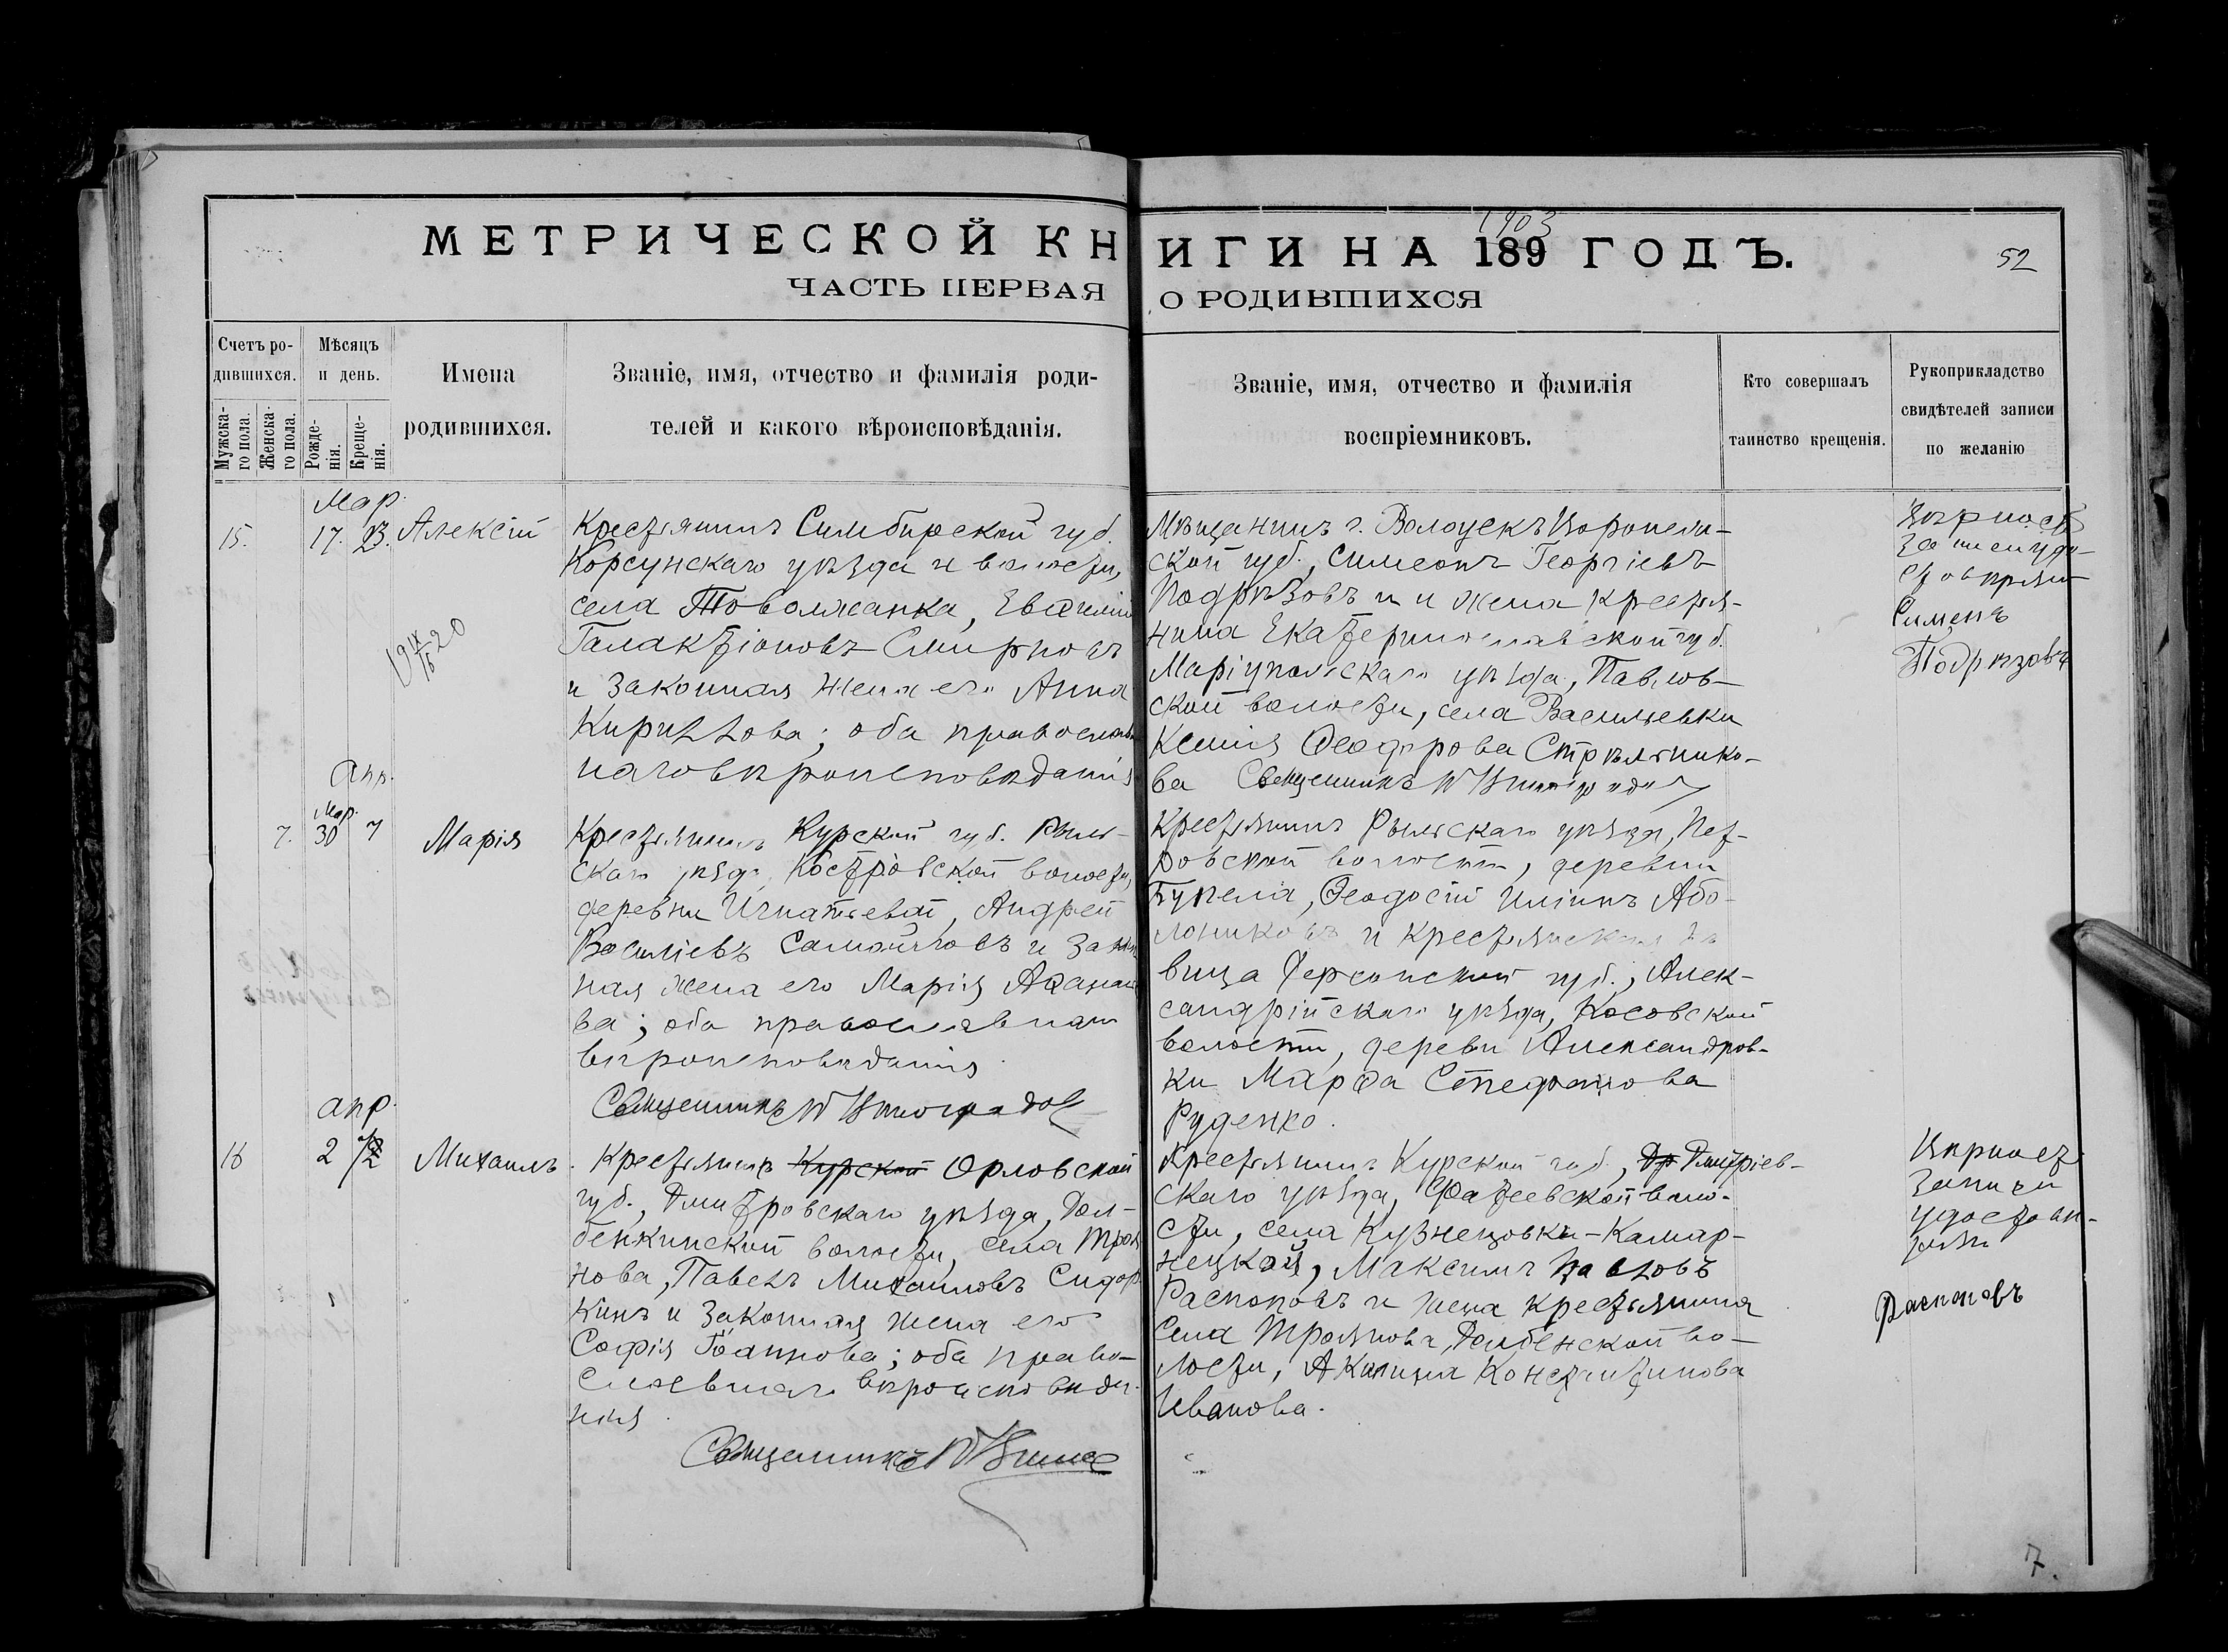 МЕТРИЧЕСКОЙ КНИГИ НА 189 ГОДЪ.
1903
52
ЧАСТЬ ПЕРВАЯ О РОДИВШИХСЯ
Счетъ ро-
дившихся.
Мужска-
го пола.
Женска-
го пола.
Мѣсяцъ
и день.
Рожде-
нія.
Креще-
нія.
Имена
родившихся.
Званіе, имя, отчество и фамилія роди-
телей и какого вѣроисповѣданія.
Званіе, имя, отчество и фамилія
воспріемниковъ.
Кто совершалъ
таинство крещенія.
Рукоприкладство
свидѣтелей записи
по желанію
Мар.
15. 17. 23. Алексій
Крестьянинъ Симбирской губ.
Корсунскаго уѣзда и волости,
села Товолжанка,
Галактіоновъ Смирновъ
и законная жена его Анна
Кириллова; оба православ
наго вѣроисповѣданія
Мѣщанинъ г.
ской губ., Симеонъ Георгіевъ
Подрѣзовъ и жена крестья-
нина Екатеринославской губ.
Маріупольскаго уѣзда, Павлов-
ской волости, села Васильевки
Ксенія Ѳеодорова Стрѣльнико-
ва Священникъ
Сименъ
Подрѣзовъ
Апр.
Мар.
7. 30 7 Марія
Крестьянинъ Курской губ. Рыль-
скаго уѣзда, Костровской волости,
деревни Игнатьевой, Андрей
Василіевъ Самойловъ и закон
ная жена его Марія
ва; оба православнаго
вѣроисповѣданія.
Священникъ Виноградов
Крестьянинъ Рыльскаго уѣзда, Пет-
ровской волости, деревни
Ѳеодосій Або-
и крестьянская дѣ
вица Херсонской губ., Алек-
сандрійскаго уѣзда, Косовской
волости, деревни Александров-
ки Марѳа Стефанова
Руденко.
Апр.
16 2 Михаилъ
Крестьянинъ Курской Орловской
губ., Дмитровскаго уѣзда, Дол-
бенкинской волости, села Троя
нова, Павелъ Михаиловъ Сидор
кинъ и законная жена его
Софія Іоаннова; оба право-
славнаго вѣроисповѣда-
нія.
Священникъ
Крестьянинъ Курской губ., Др Дмитріев-
скаго уѣзда, Фатеевской воло-
сти, села Кузнецовки-Камар-
нецкой, Максимъ Павловъ
Распоповъ и жена крестьянина
села Троянова, Долбенской во-
лости, Акилина Константинова
Иванова.
Вѣрность
записи
удостовѣ-
ряю
Распоповъ
7.